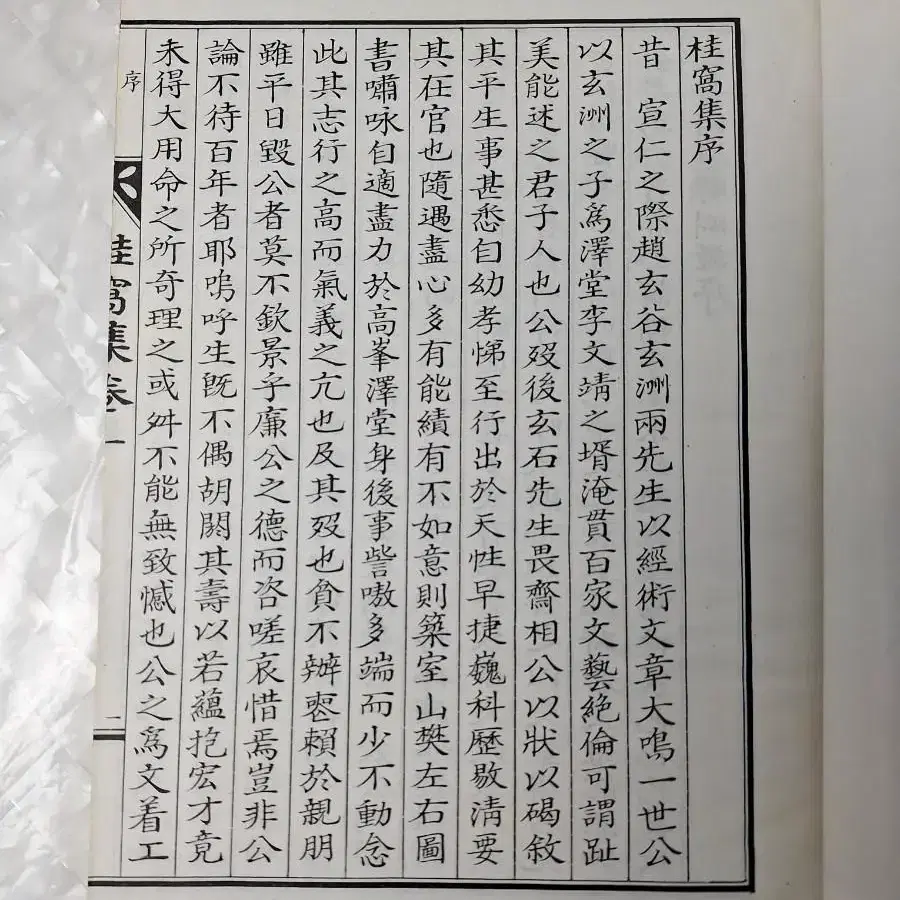 桂窩集序
昔　宣仁之際趙玄谷玄洲兩先生以經術文章大鳴一世公
以玄洲之子爲澤堂李文靖之壻淹貫百家文藝絶倫可謂趾
美能述之君子人也公歿後玄石先生畏齋相公以狀以碣敘
其平生事甚悉自幼孝悌至行出於天性早捷巍科歷敭淸要
其在官也隨遇盡心多有能績有不如意則築室山樊左右圖
書嘯咏自適盡力於高峯澤堂身後事訾嗷多端而少不動念
此其志行之高而氣義之亢也及其歿也貧不辦喪賴於親朋
雖平日毀公者莫不欽景乎廉公之德而咨嗟哀惜焉豈非公
論不待百年者耶嗚呼生旣不偶胡閼其壽以若蘊抱宏才竟
未得大用命之所奇理之或舛不能無致憾也公之爲文着工
序
桂窩集卷一
二